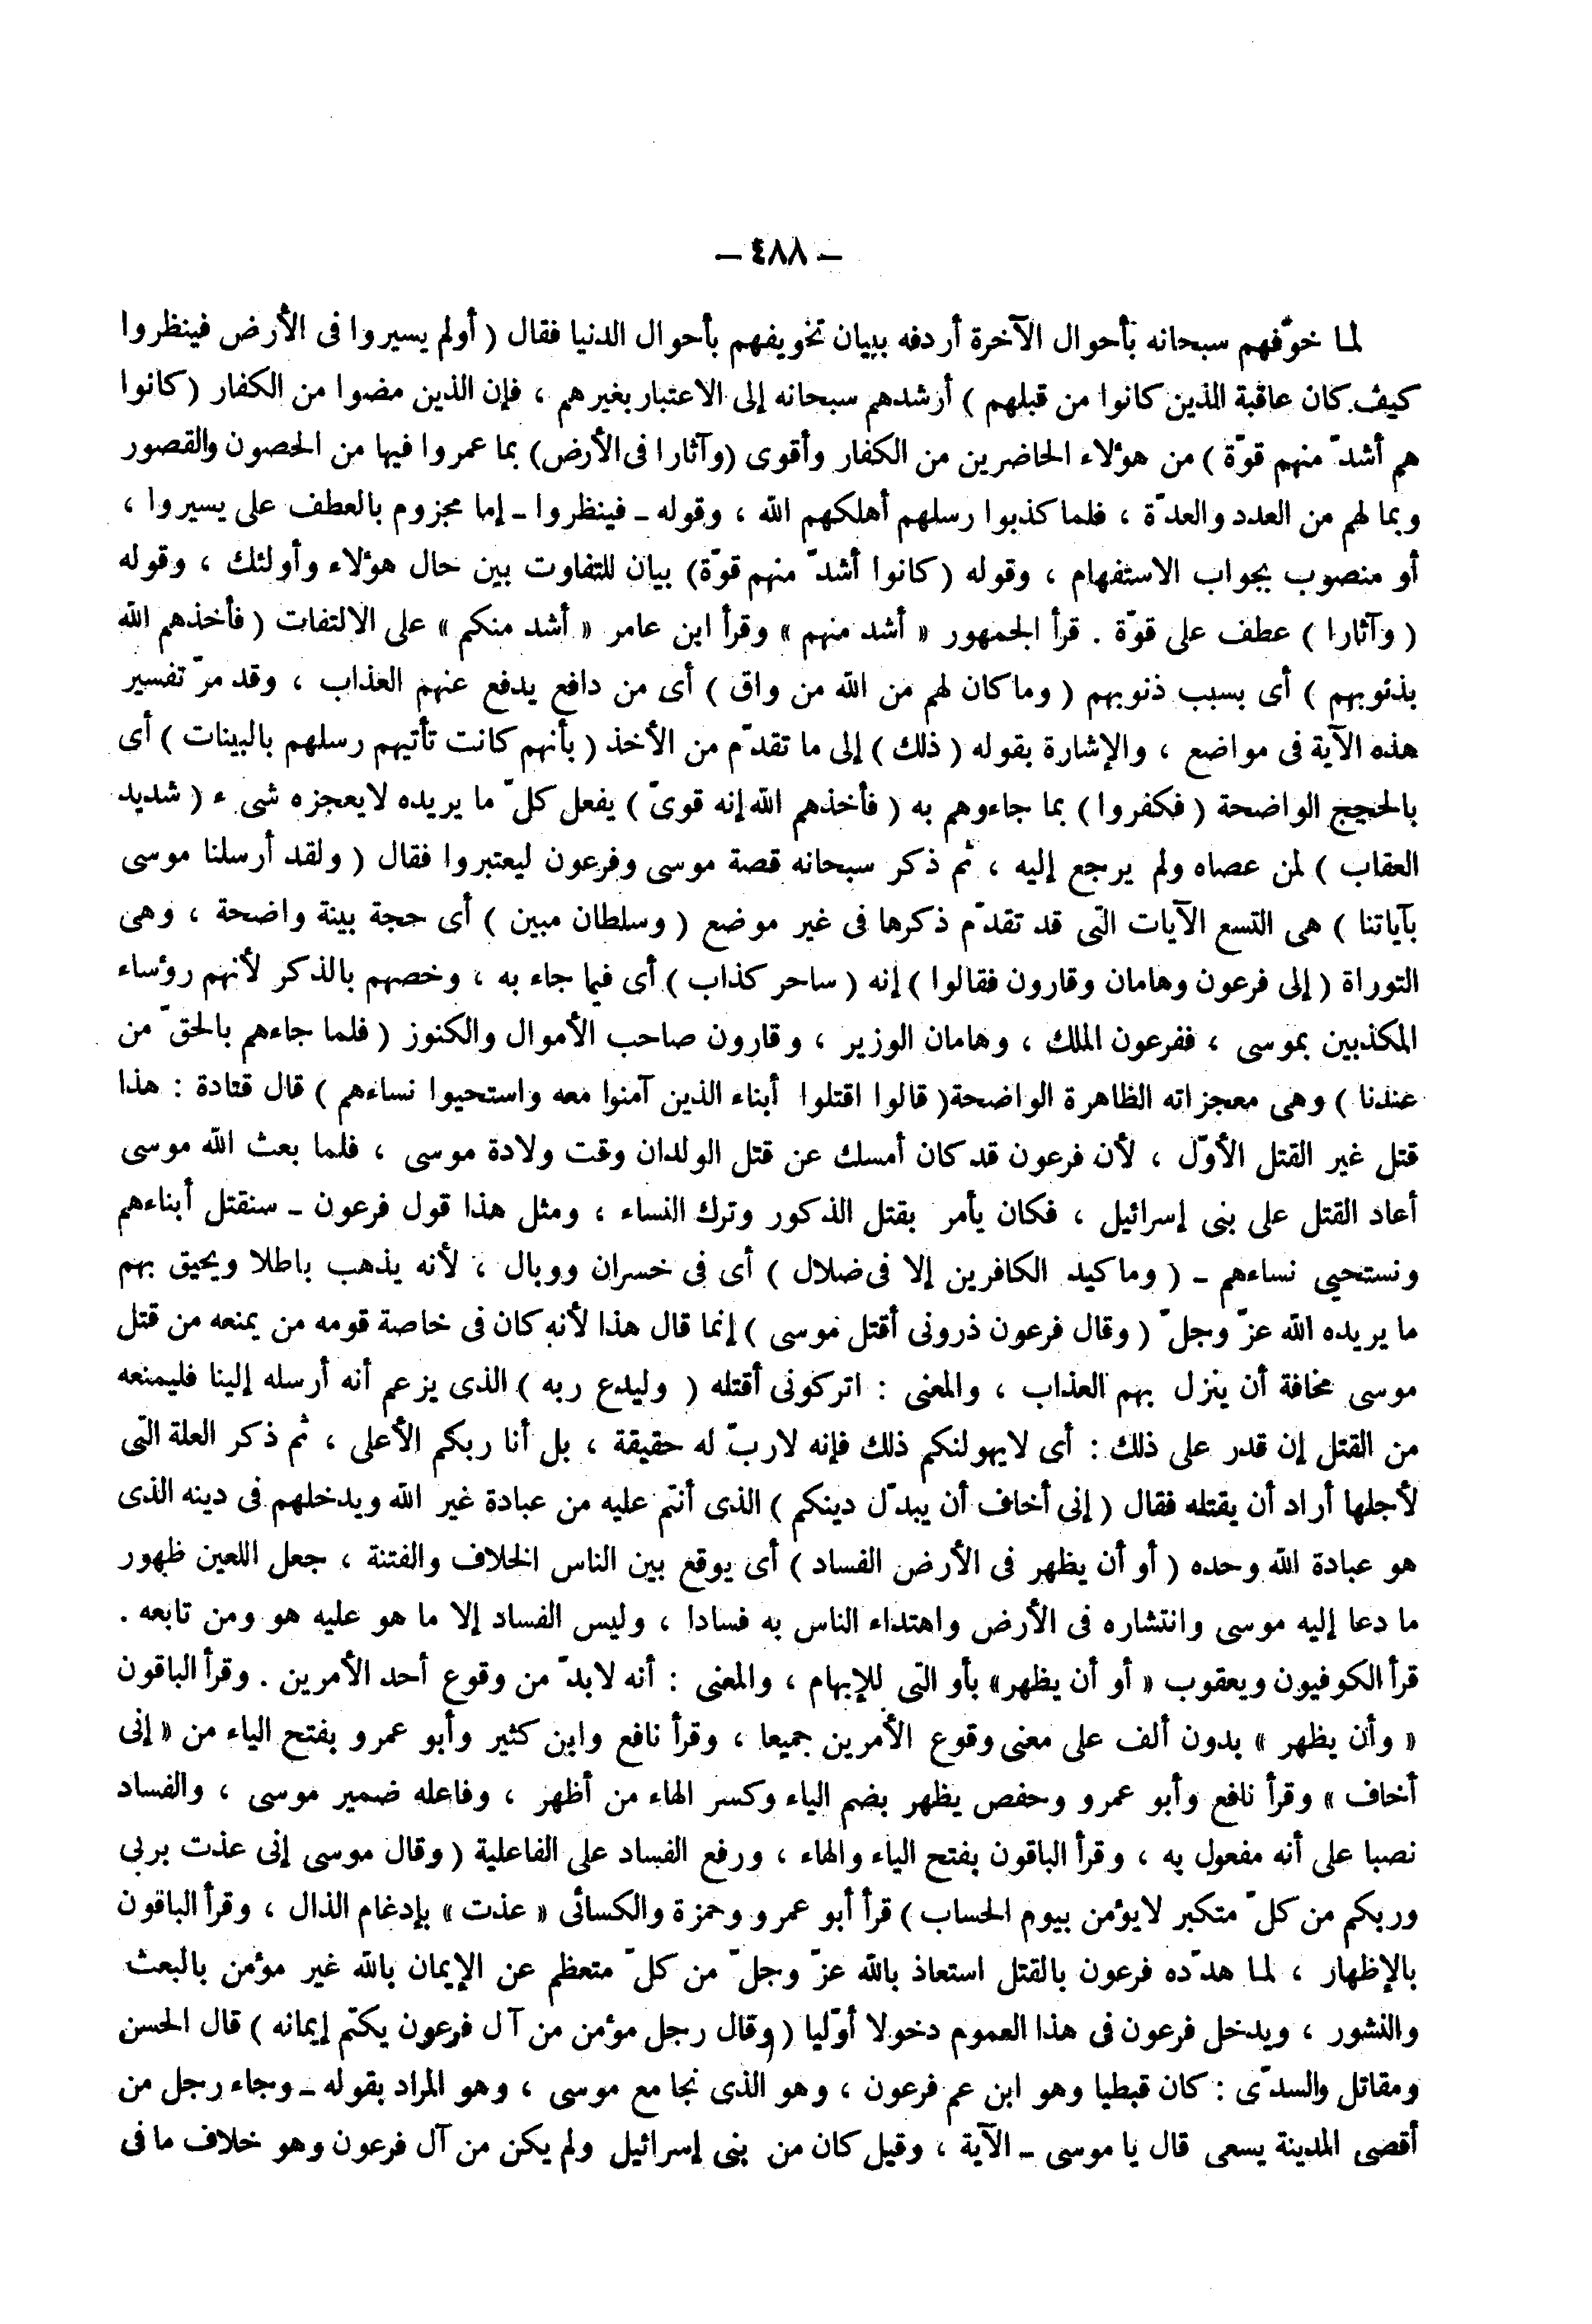 – ٤٨٨ –
لما خوّفهم سبحانه بأحوال الآخرة أردفه ببيان تخويفهم بأحوال الدنيا فقال ( أولم يسيروا فى الأرض فينظروا
كيف كان عاقبة الذين كانوا من قبلهم ) أرشدهم سبحانه إلى الاعتبار بغيرهم ، فإن الذين مضوا من الكفار ( كانوا
هم أشدّ منهم قوّة ) من هؤلاء الحاضرين من الكفار وأقوى (وآثارا فى الأرض) بما عمروا فيها من الحصون والقصور
وبما لهم من العدد والعدّة ، فلما كذبوا رسلهم أهلكهم الله ، وقوله ـ فينظروا ـ إما مجزوم بالعطف على يسيروا ،
أو منصوب بجواب الاستفهام ، وقوله ( كانوا أشدّ منهم قوّة) بيان للتفاوت بين حال هؤلاء وأولئك ، وقوله
( وآثارا ) عطف على قوّة . قرأ الجمهور « أشد منهم » وقرأ ابن عامر « أشد منكم » على الالتفات ( فأخذهم الله
بذنوبهم ) أى بسبب ذنوبهم ( وما كان لهم من الله من واق ) أى من دافع يدفع عنهم العذاب ، وقد مرّ تفسير
هذه الآية فى مواضع ، والإشارة بقوله ( ذلك ) إلى ما تقدّم من الأخذ ( بأنهم كانت تأتيهم رسلهم بالبينات ) أى
بالحجج الواضحة ( فكفروا ) بما جاءوهم به ( فأخذهم الله إنه قوىّ ) يفعل كلّ ما يريده لايعجزه شىء ( شديد
العقاب ) لمن عصاه ولم يرجع إليه ، ثم ذكر سبحانه قصة موسى وفرعون ليعتبروا فقال ( ولقد أرسلنا موسى
بآياتنا ) هى التسع الآيات التى قد تقدّم ذكرها فى غير موضع ( وسلطان مبين ) أى حجة بينة واضحة ، وهى
التوراة ( إلى فرعون وهامان وقارون فقالوا ) إنه ( ساحر كذاب ) أى فيما جاء به ، وخصهم بالذكر لأنهم رؤساء
المكذبين بموسى ، ففرعون الملك ، وهامان الوزير ، وقارون صاحب الأموال والكنوز ( فلما جاءهم بالحقّ من
عندنا ) وهى معجزاته الظاهرة الواضحة ( قالوا اقتلوا أبناء الذين آمنوا معه واستحيوا نساءهم ) قال قتادة : هذا
قتل غير القتل الأوّل ، لأن فرعون قد كان أمسك عن قتل الولدان وقت ولادة موسى ، فلما بعث الله موسى
أعاد القتل على بنى إسرائيل ، فكان يأمر بقتل الذكور وترك النساء ، ومثل هذا قول فرعون ـ سنقتل أبناءهم
ونستحيى نساءهم ـ ( وما كيد الكافرين إلا فى ضلال ) أى فى خسران ووبال ، لأنه يذهب باطلا ويحيق بهم
ما يريده الله عزّ وجلّ ( وقال فرعون ذرونى أقتل موسى ) إنما قال هذا لأنه كان فى خاصة قومه من يمنعه من قتل
موسى مخافة أن ينزل بهم العذاب ، والمعنى : اتركونى أقتله ( وليدع ربه ) الذى يزعم أنه أرسله إلينا فليمنعه
من القتل إن قدر على ذلك : أى لايهولنكم ذلك فإنه لاربّ له حقيقة ، بل أنا ربكم الأعلى ، ثم ذكر العلة التى
لأجلها أراد أن يقتله فقال ( إنى أخاف أن يبدّل دينكم ) الذى أنتم عليه من عبادة غير الله ويدخلهم فى دينه الذى
هو عبادة الله وحده ( أو أن يظهر فى الأرض الفساد ) أى يوقع بين الناس الخلاف والفتنة ، جعل اللعين ظهور
ما دعا إليه موسى وانتشاره فى الأرض واهتداء الناس به فسادا ، وليس الفساد إلا ما هو عليه هو ومن تابعه .
قرأ الكوفيون ويعقوب « أو أن يظهر» بأو التى للإبهام ، والمعنى : أنه لابدّ من وقوع أحد الأمرين . وقرأ الباقون
« وأن يظهر » بدون ألف على معنى وقوع الأمرين جميعا ، وقرأ نافع وابن كثير وأبو عمرو بفتح الياء من « إنى
أخاف » وقرأ نافع وأبو عمرو وحفص يظهر بضم الياء وكسر الهاء من أظهر ، وفاعله ضمير موسى ، والفساد
نصبا على أنه مفعول به ، وقرأ الباقون بفتح الياء والهاء ، ورفع الفساد على الفاعلية ( وقال موسى إنى عذت بربى
وربكم من كلّ متكبر لايؤمن بيوم الحساب ) قرأ أبو عمرو وحمزة والكسائى « عذت » بإدغام الذال ، وقرأ الباقون
بالإظهار ، لما هدّده فرعون بالقتل استعاذ بالله عزّ وجلّ من كلّ متعظم عن الإيمان بالله غير مؤمن بالبعث
والنشور ، ويدخل فرعون فى هذا العموم دخولا أوّليا ( وقال رجل مؤمن من آل فرعون يكتم إيمانه ) قال الحسن
ومقاتل والسدّى : كان قبطيا وهو ابن عم فرعون ، وهو الذى نجا مع موسى ، وهو المراد بقوله ـ وجاء رجل من
أقصى المدينة يسعى قال يا موسى ـ الآية ، وقيل كان من بنى إسرائيل ولم يكن من آل فرعون وهو خلاف ما فى